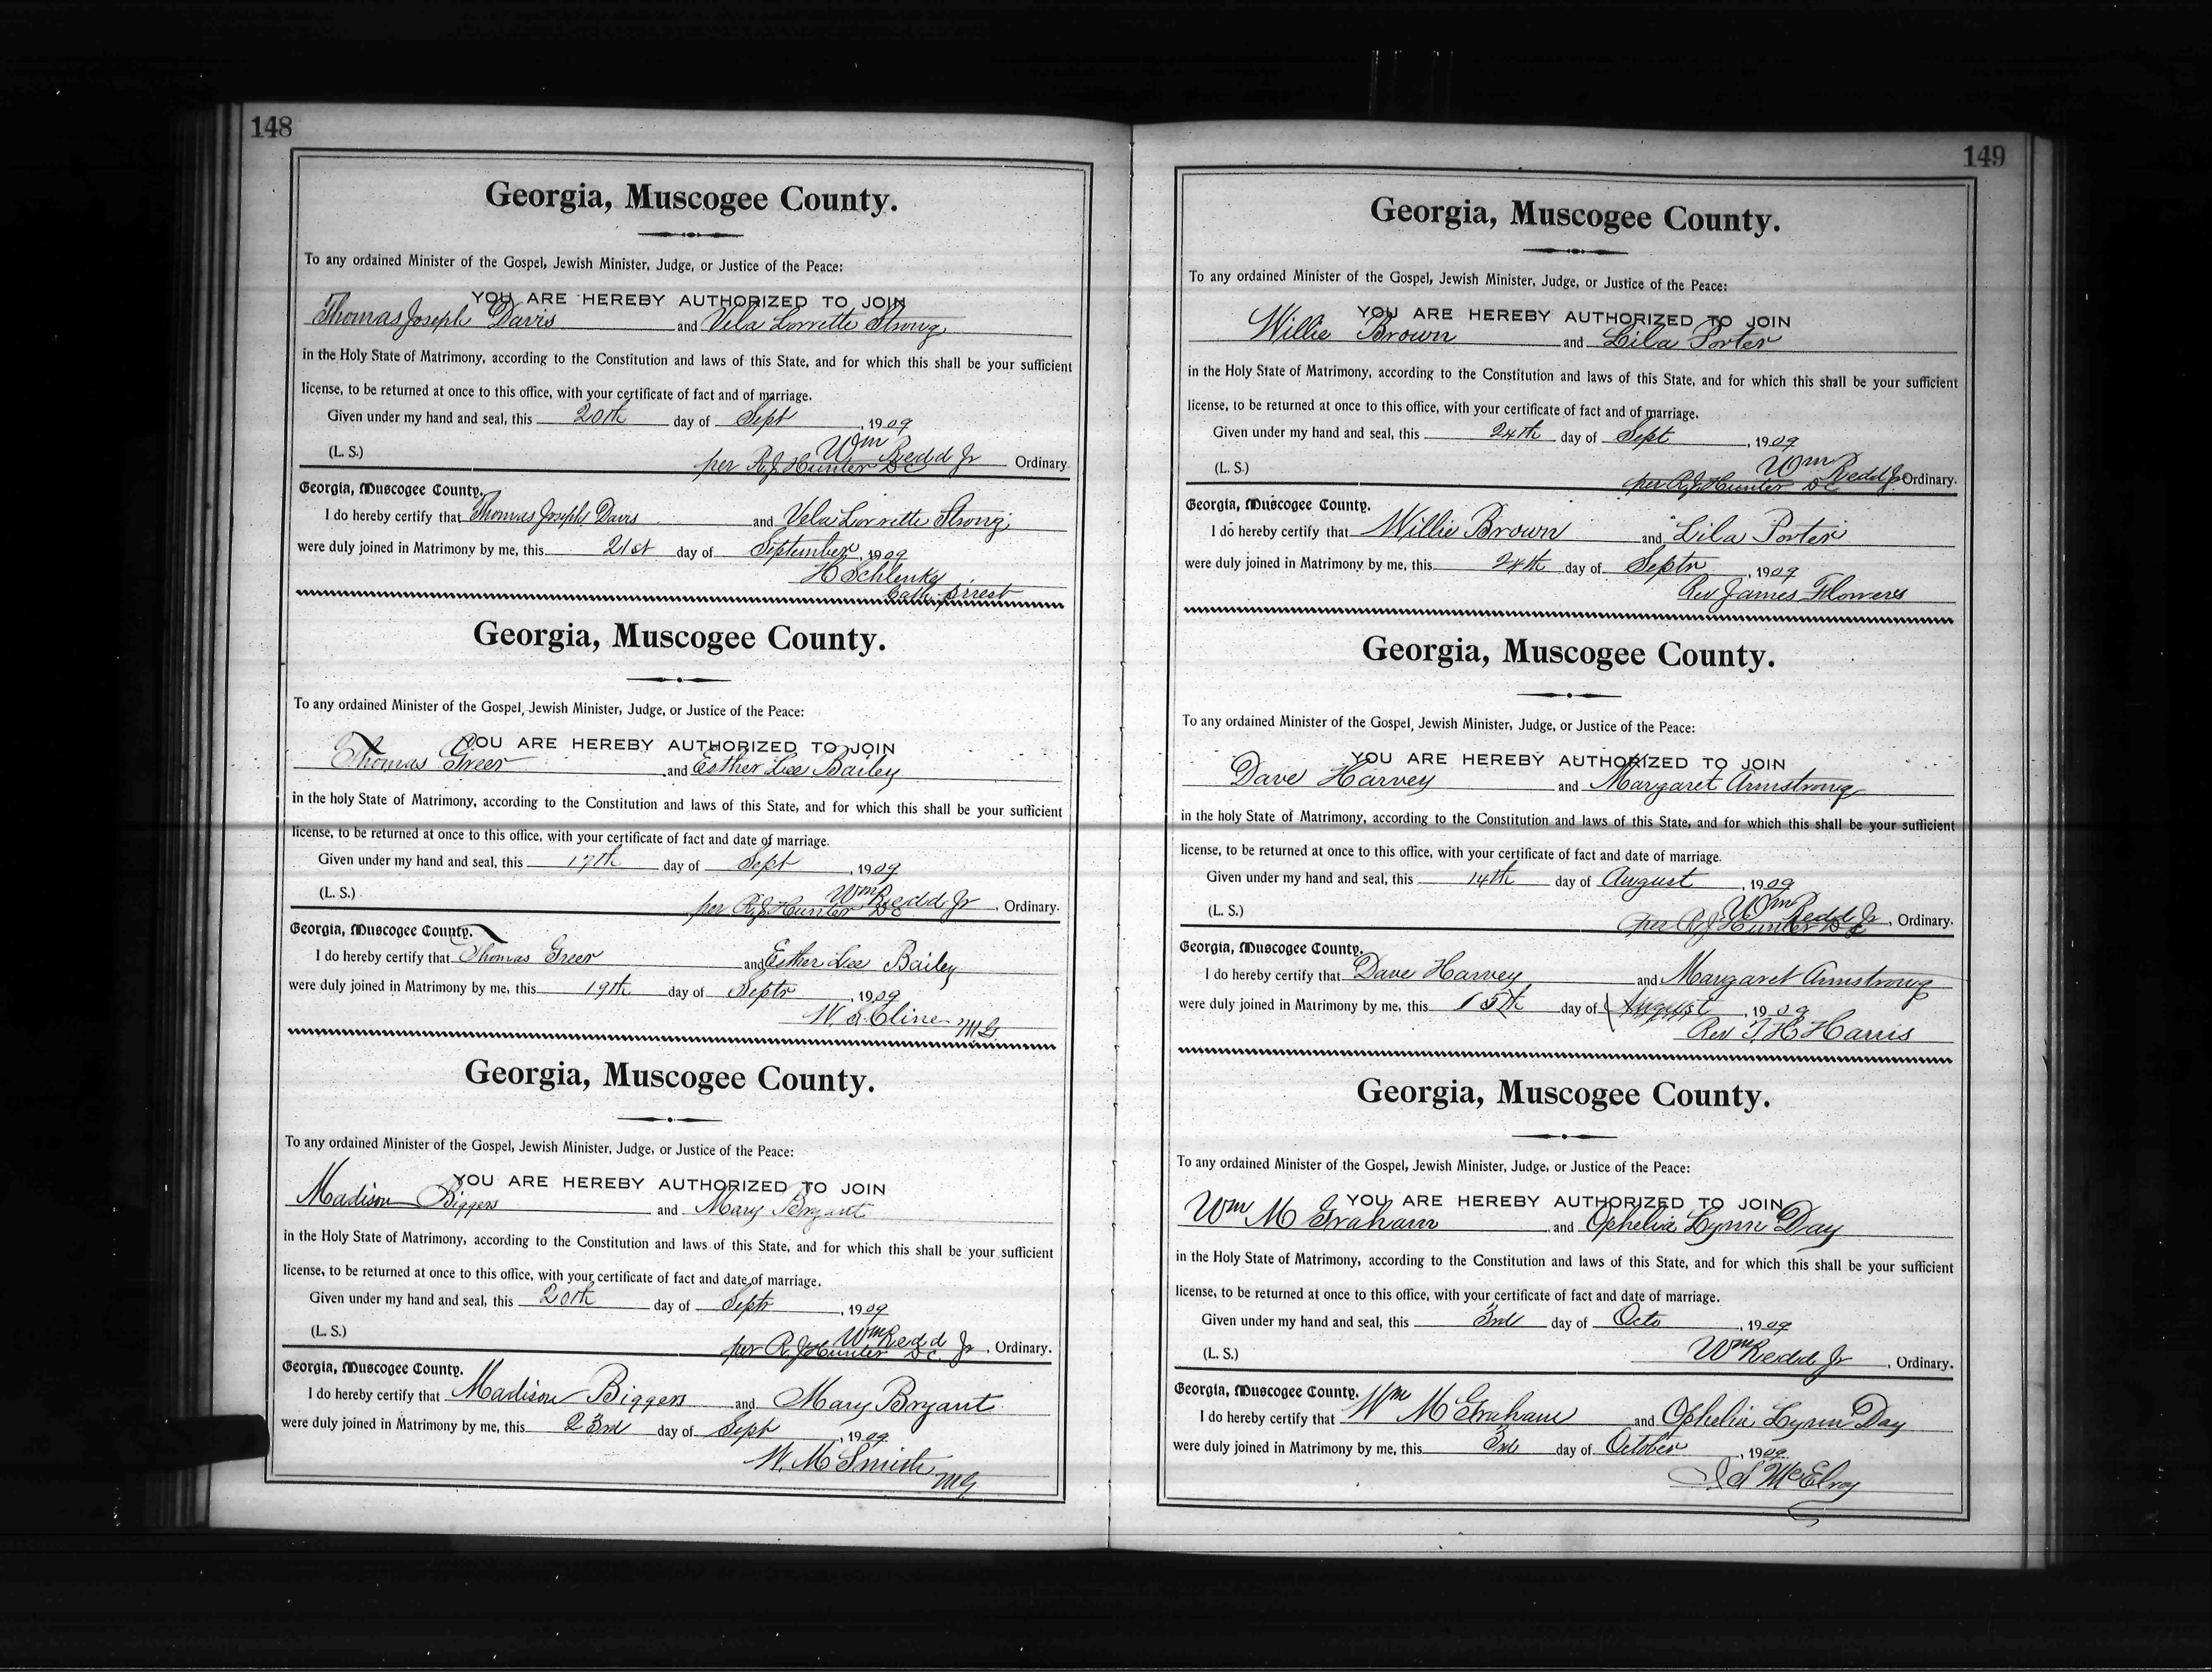 148
Georgia, Muscogee County.
To any ordained Minister of the Gospel, Jewish Minister, Judge, or Justice of the Peace:
YOU ARE HEREBY AUTHORIZED TO JOIN
Thomas Joseph Davis and Vela Lorrette Strong
in the Holy State of Matrimony, according to the Constitution and laws of this State, and for which this shall be your sufficient
license, to be returned at once to this office, with your certificate of fact and of marriage.
Given under my hand and seal, this 20th day of Sept, 1909
Wm Redd Jr
(L. S.) per R.J. Hunter DC Ordinary.
Georgia, Muscogee County.
I do hereby certify that Thomas Joseph Davis and Vela Lorrette Strong
were duly joined in Matrimony by me, this 21st day of September, 1909
H Schlenke
Cath. Priest
Georgia, Muscogee County.
To any ordained Minister of the Gospel, Jewish Minister, Judge, or Justice of the Peace:
YOU ARE HEREBY AUTHORIZED TO JOIN
Thomas Greer and Esther Lee Bailey
in the holy State of Matrimony, according to the Constitution and laws of this State, and for which this shall be your sufficient
license, to be returned at once to this office, with your certificate of fact and date of marriage.
Given under my hand and seal, this 17th day of Sept, 1909
Wm Redd Jr
(L. S.) per R.J. Hunter DC, Ordinary.
Georgia, Muscogee County.
I do hereby certify that Thomas Greer and Esther Lee Bailey
were duly joined in Matrimony by me, this 19th day of Septr, 1909
W. S. Cline M.G.
Georgia, Muscogee County.
To any ordained Minister of the Gospel, Jewish Minister, Judge, or Justice of the Peace:
YOU ARE HEREBY AUTHORIZED TO JOIN
Madison Biggers and Mary Bryant
in the Holy State of Matrimony, according to the Constitution and laws of this State, and for which this shall be your sufficient
license, to be returned at once to this office, with your certificate of fact and date of marriage.
Given under my hand and seal, this 20th day of Septr, 1909
Wm Redd Jr
(L. S.) per R.J. Hunter DC, Ordinary.
Georgia, Muscogee County.
I do hereby certify that Madison Biggers and Mary Bryant
were duly joined in Matrimony by me, this 23rd day of Sept, 1909
W. M Smith
MG
149
Georgia, Muscogee County.
To any ordained Minister of the Gospel, Jewish Minister, Judge, or Justice of the Peace:
YOU ARE HEREBY AUTHORIZED TO JOIN
Willie Brown and Lila Porter
in the Holy State of Matrimony, according to the Constitution and laws of this State, and for which this shall be your sufficient
license, to be returned at once to this office, with your certificate of fact and of marriage.
Given under my hand and seal, this 24th day of Sept, 1909
Wm Redd Jr
(L. S.) per R.J. Hunter DC Ordinary.
Georgia, Muscogee County.
I do hereby certify that Willie Brown and Lila Porter
were duly joined in Matrimony by me, this 24th day of Septr, 1909
Rev James Flowers
Georgia, Muscogee County.
To any ordained Minister of the Gospel, Jewish Minister, Judge, or Justice of the Peace:
YOU ARE HEREBY AUTHORIZED TO JOIN
Dave Harvey and Margaret Armstrong
in the holy State of Matrimony, according to the Constitution and laws of this State, and for which this shall be your sufficient
license, to be returned at once to this office, with your certificate of fact and date of marriage.
Given under my hand and seal, this 14th day of August, 1909
Wm Redd Jr
(L. S.) per R.J. Hunter DC, Ordinary.
Georgia, Muscogee County.
I do hereby certify that Dave Harvey and Margaret Armstrong
were duly joined in Matrimony by me, this 15th day of August, 1909
Rev T. H. Harris
Georgia, Muscogee County.
To any ordained Minister of the Gospel, Jewish Minister, Judge, or Justice of the Peace:
YOU ARE HEREBY AUTHORIZED TO JOIN
Wm M Graham and Ophelia Lynn Day
in the Holy State of Matrimony, according to the Constitution and laws of this State, and for which this shall be your sufficient
license, to be returned at once to this office, with your certificate of fact and date of marriage.
Given under my hand and seal, this 3rd day of Octo, 1909
(L. S.) Wm Redd Jr, Ordinary.
Georgia, Muscogee County.
I do hereby certify that Wm M Graham and Ophelia Lynn Day
were duly joined in Matrimony by me, this 3rd day of October, 1909
McElroy